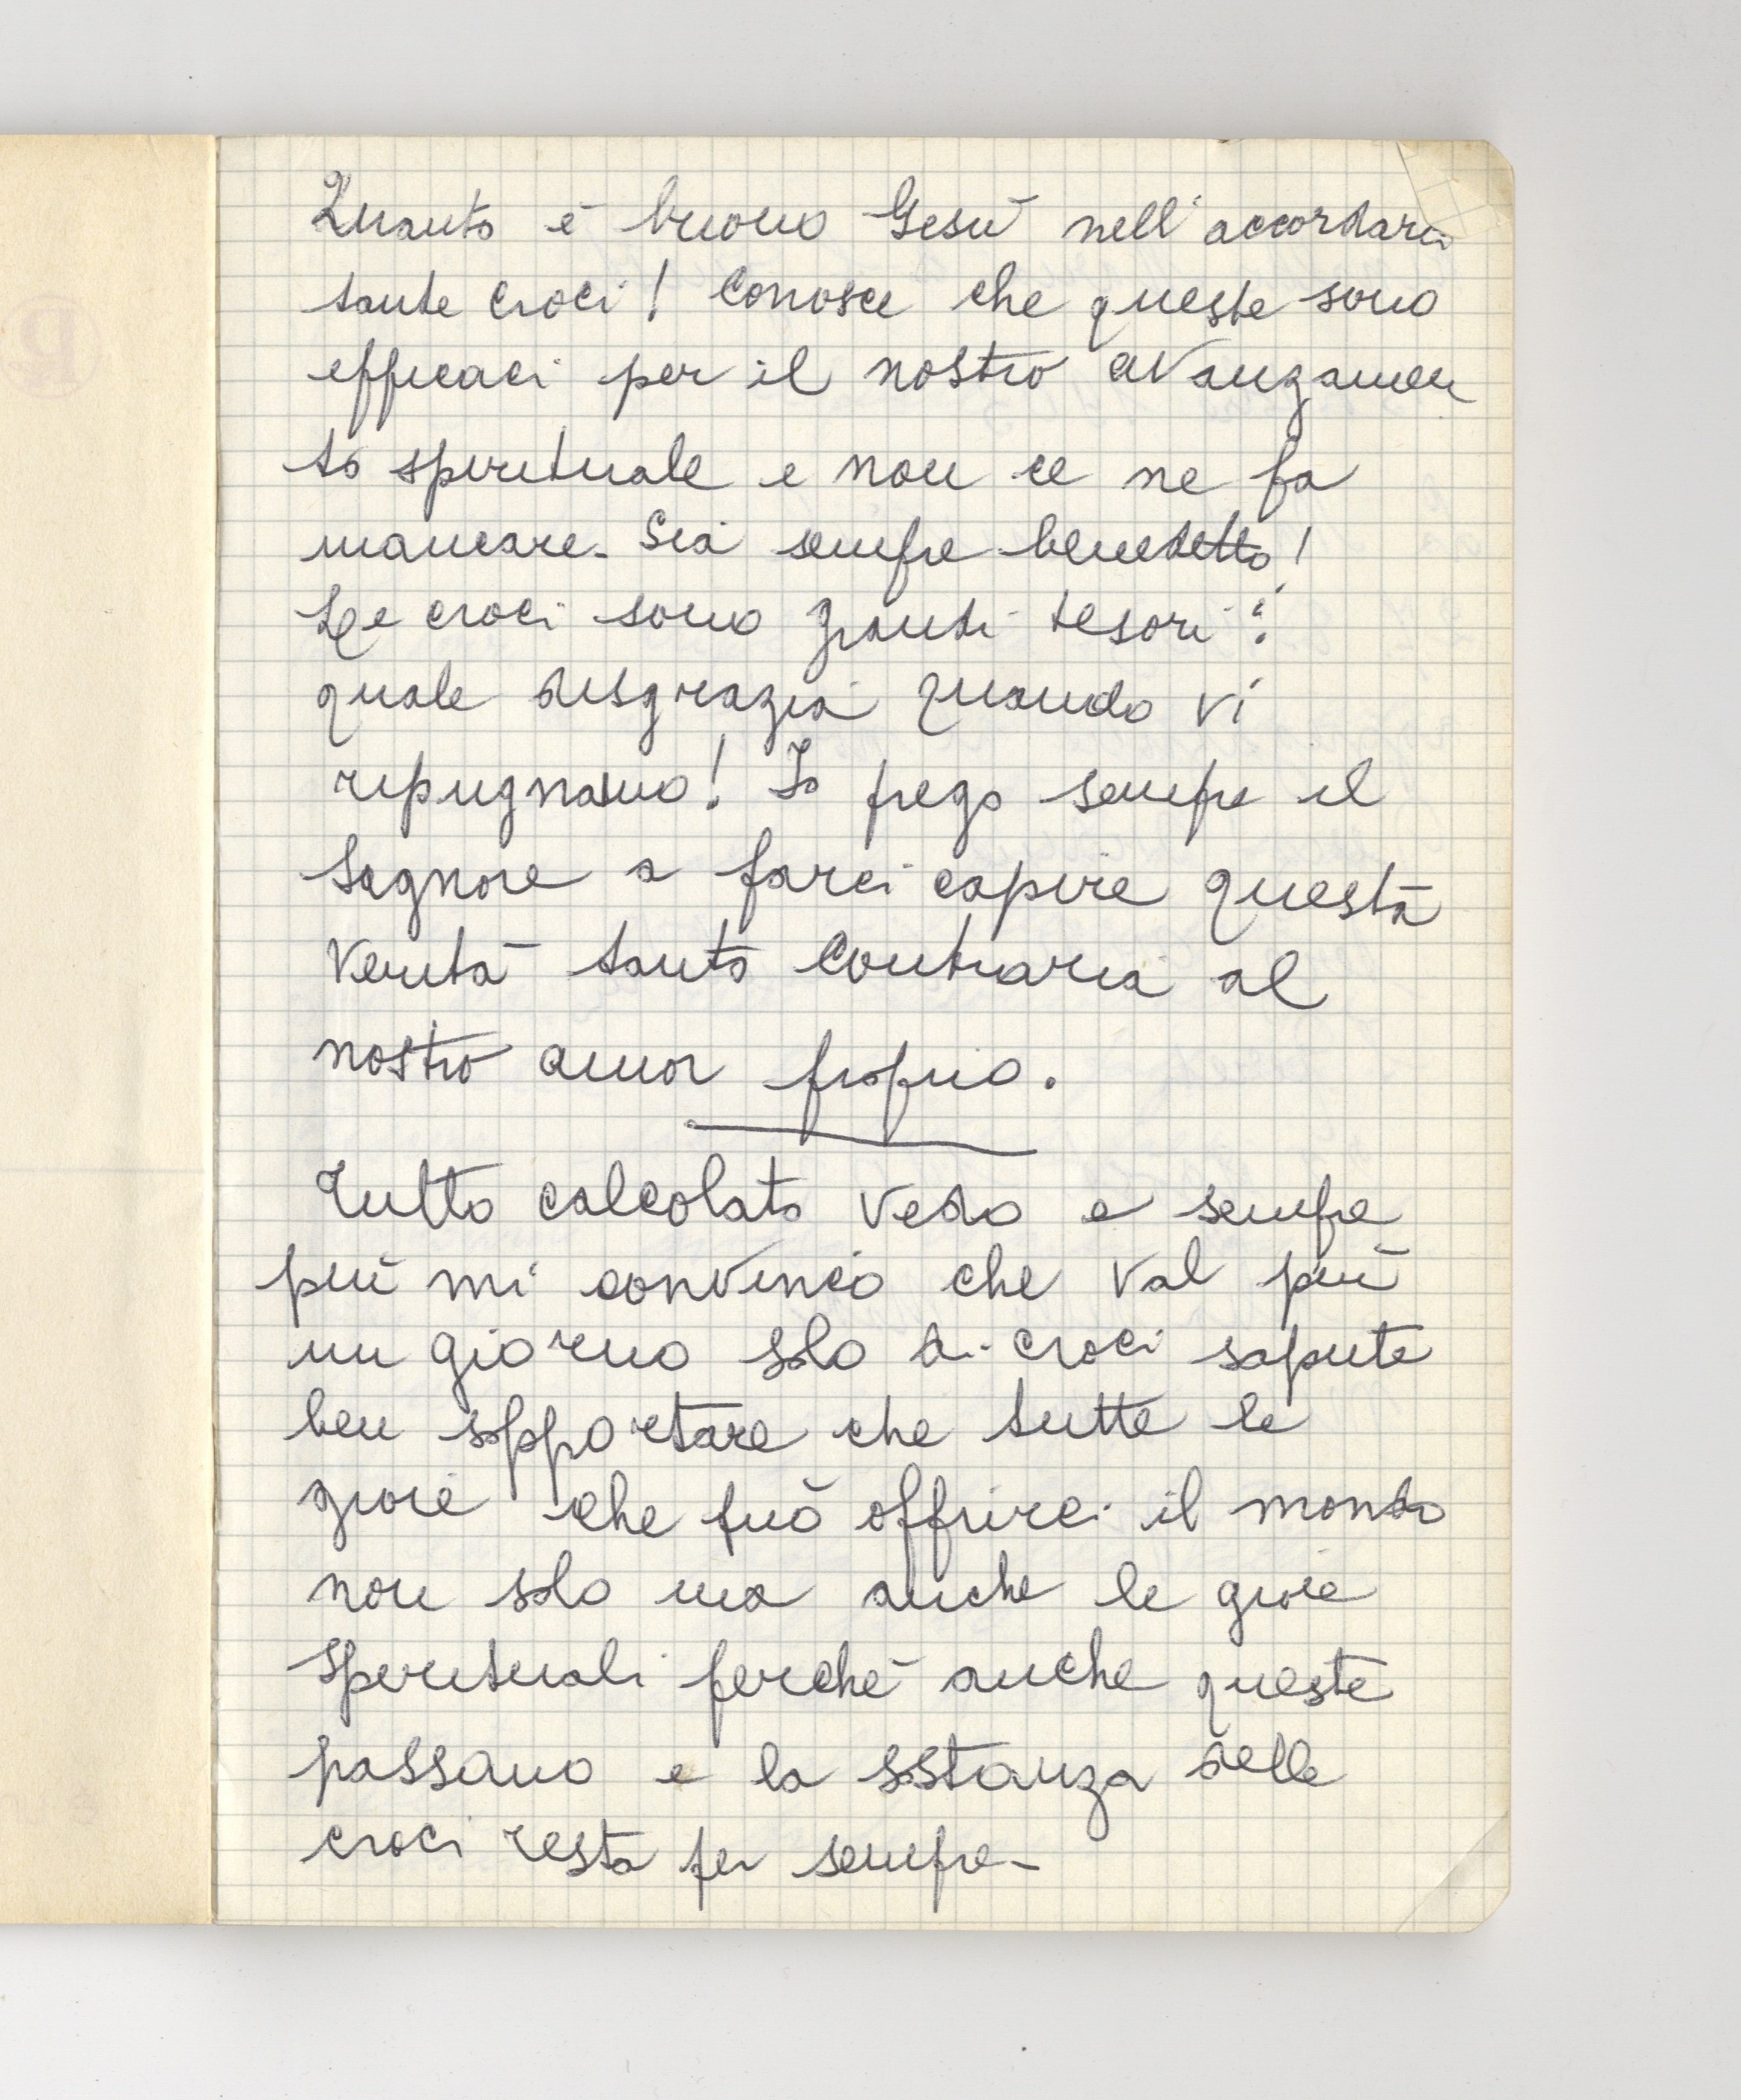 Quanto è buono Gesù nell'accordarci
tante croci! Conosce che queste sono
efficaci per il nostro avanzamen
to spirituale e non ce ne fa
mancare. Sia sempre benedetto!
Le croci sono grandi tesori:
quale disgrazia quando vi
repugnamo! Io prego sempre il
Signore a farci capire questa
verità tanto contraria al
nostro amor proprio.
Tutto calcolato vedo e sempre
più mi convinco che val più
un giorno solo di croci sapute
ben sopportare che tutte le
gioie che può offrirci il mondo
non solo ma anche le gioie
spirituali perché anche queste
passano e la sostanza delle
croci resta per sempre-